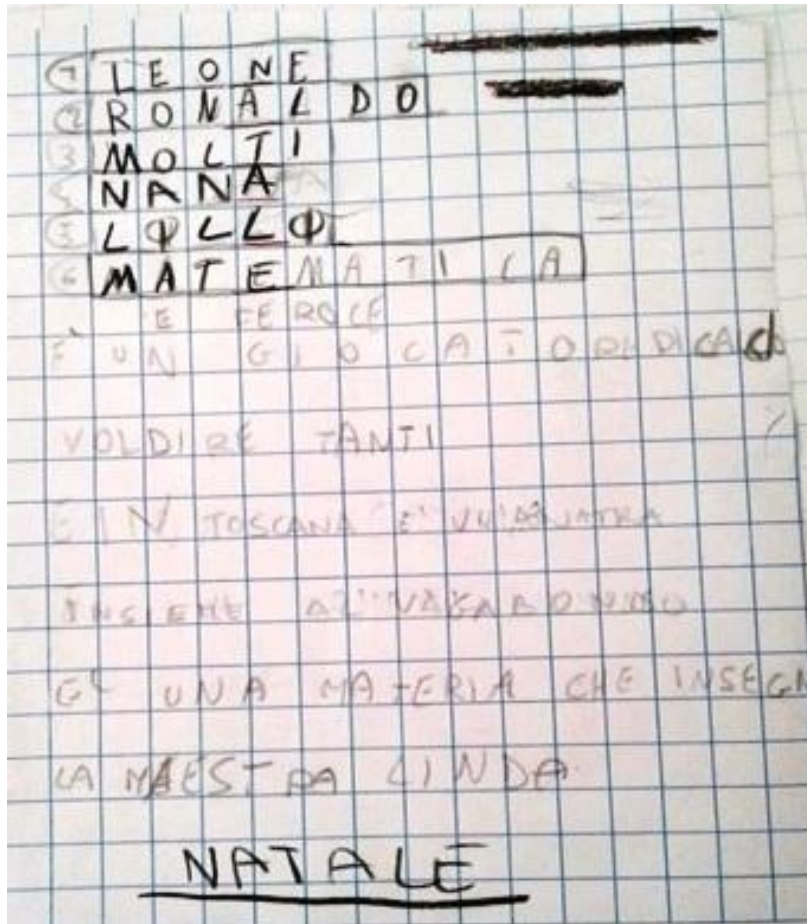 1 LEONE
2 RONALDO
3 MOLTI
NANA
5 LOLLO
6 MATEMATICA
E FEROCE
E' UN GIOCATORE DI CALCIO
VOLDIRE TANTI
E IN TOSCANA E' UN'ANATRA
INSIEME AL VAGABONDO
E' UNA MATERIA CHE INSEGN
LA MAESTRA LINDA
NATALE